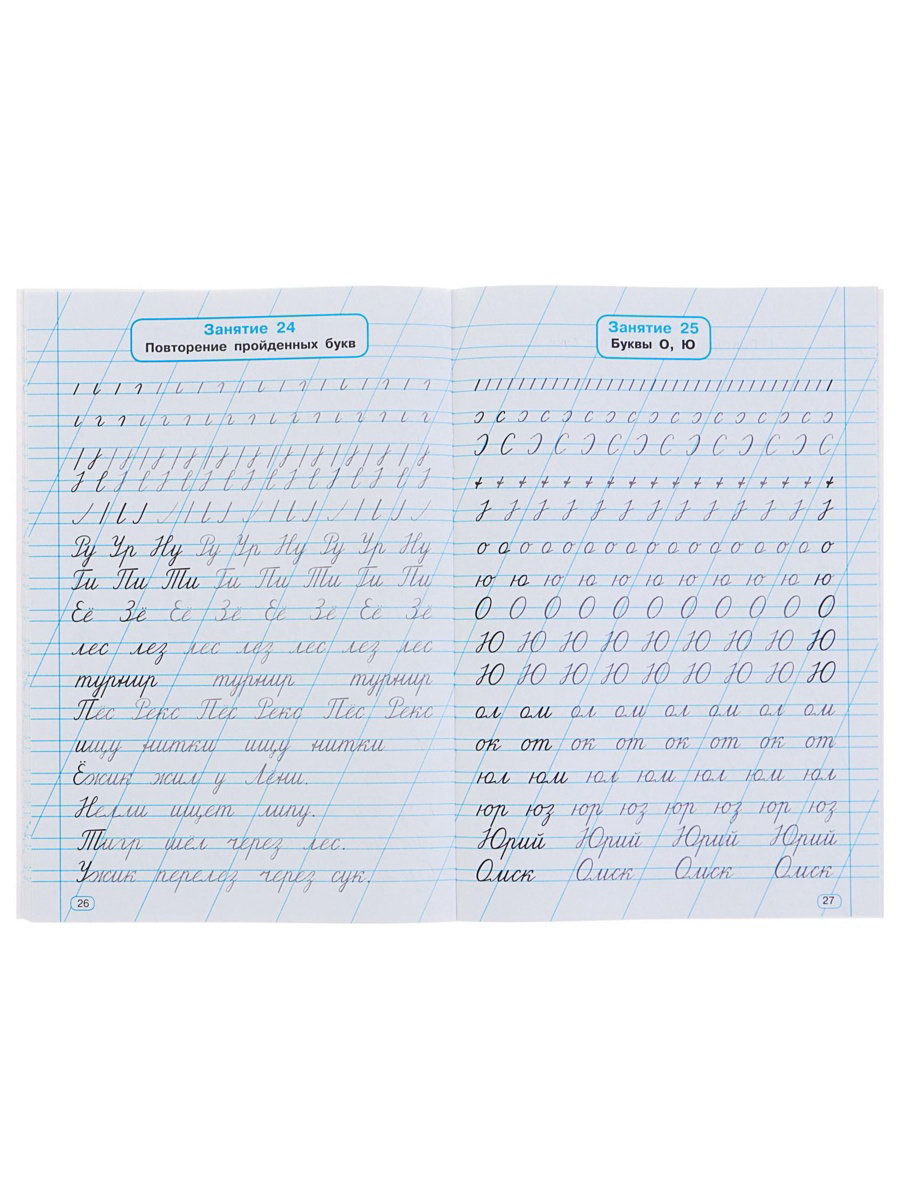 Занятие 24
Повторение пройденных букв
Ру Ур Ну Ру Ур Ну Ру Ур Ну
Ги Пи Ти Ги Пи Ти Ги Пи
Её Зё Её Зё Её Зё Её Зё
лес лез лес лез лес лез лес
турнир турнир турнир
Пёс Рекс Пёс Рекс Пёс Рекс
ищу нитки ищу нитки
Ёжик жил у Лёни.
Нелли ищет липу.
Тигр шёл через лес.
Ужик перелез через сук.
26
Занятие 25
Буквы О, Ю
о о о о о о о о о о о о о о о о
ю ю ю ю ю ю ю ю ю ю
О О О О О О О О О О О
Ю Ю Ю Ю Ю Ю Ю Ю Ю
Ю Ю Ю Ю Ю Ю Ю Ю Ю
ол ом ол ом ол ом ол ом
ок от ок от ок от ок от
юл юм юл юм юл юм юл
юр юз юр юз юр юз юр юз
Юрий Юрий Юрий Юрий
Омск Омск Омск Омск
27